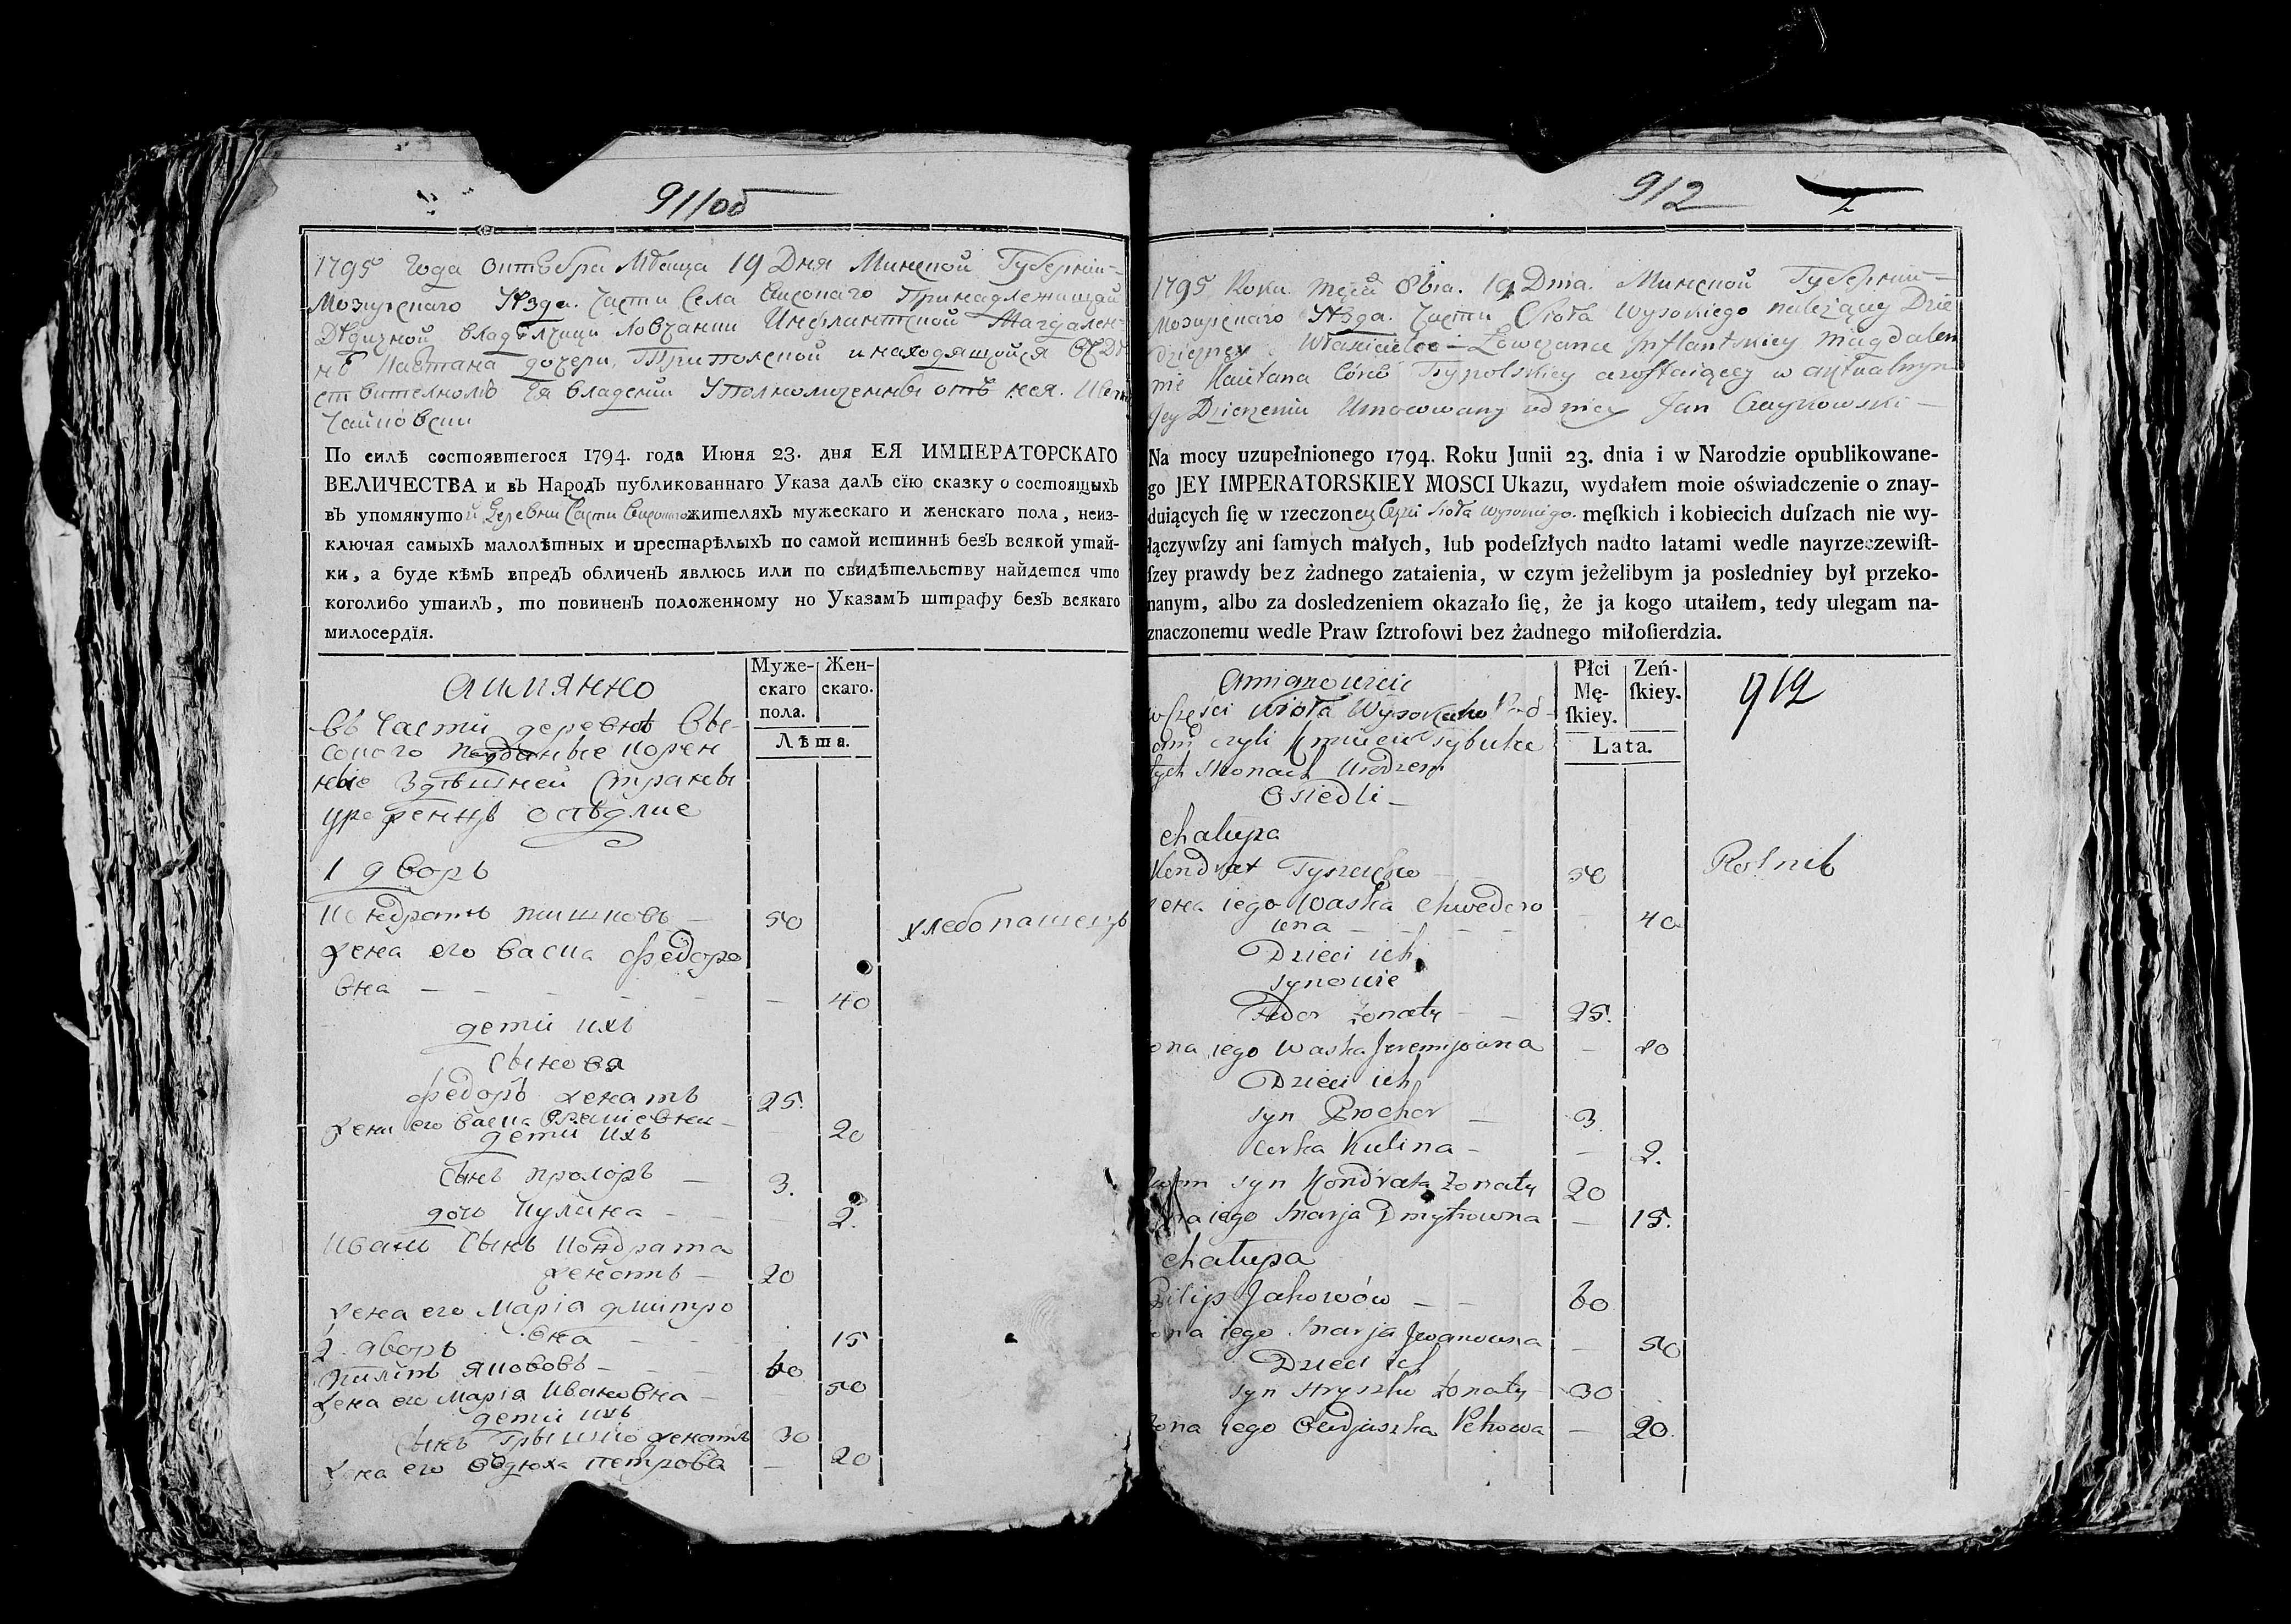 911об
1795 года октебра Мѣсяца 19 Дня Минской Губерніи
Мозырского Уѣзда. Части Села Высокаго Принадлежащой
Дѣдичной владѣлчицы Ловчанки Инфлянтской Магдален-
нѣ Каетана дочери, Триполской и находящойся
ствителномъ Ея владении Уполномоченны отъ нея. Иванъ
Чайковски
По силѣ состоявшегося 1794. года Июня 23. дня ЕЯ ИМПЕРАТОРСКАГО
ВЕЛИЧЕСТВА и въ Народъ публикованнаго Указа далъ сїю сказку о состоящыхъ
въ упомянутой Деревни Части Высокого жителяхъ мужескаго и женскаго пола, неиз-
ключая самыхъ малолѣтныхъ и престарѣлыхъ по самой истиннѣ безъ всякой утай-
ки, а буде кѣмъ впредъ обличенъ явлюсь или по свидѣтельству найдется что
коголибо утаилъ, то повиненъ положенному но Указамъ штрафу безъ всякаго
милосердїя.
Муже-
скаго
пола.
Жен-
скаго.
Лѣта.
аимянно
въ Части деревнѣ Вы-
сокого подданые корен
ные здѣшней Страны
уроженцѣ осѣдлие
1 дворъ
Кондратъ тишковъ — 50 хлебопашецъ
жена его васка федоро
вна — — — 40
дети ихъ
Сынова
федоръ женатъ 25.
жена его васка — 20
дети ихъ
Сынъ прохоръ — 3.
дочь Кулина — — 2.
Иванъ Сынъ Кондрата
женатъ — 20
жена его Марія дмитро
вна — 15
2. дворъ
пилипъ якововъ — 60
жена его Марія Ивановна — 50
дети ихъ
Сынъ Грышко женатъ 30
жена его овдюха петрова — 20
912
1795 Roku Mca 8bra. 19 Dnia. Минской Губерніи
Мозырскаго Уѣзда. Части Siola Wysokiego należący Dzie
dziczney Własciciel Łowczance Inflantskiey Magdalen
nie Kaietana Córce Trypolskiey azostaiącey w aktualnym
Jey Dzierzeniu Umocowany od niey Jan Czaykowski —
Na mocy uzupełnionego 1794. Roku Junii 23. dnia i w Narodzie opublikowane-
go JEY IMPERATORSKIEY MOSCI Ukazu, wydałem moie oświadczenie o znay-
duiących ſię w rzeczoney Części Sioła Wysokiego. męſkich i kobiecich duſzach nie wy-
łączywſzy ani ſamych małych, lub podeſzłych nadto latami wedle nayrzeczewiſt-
ſzey prawdy bez żadnego zataienia, w czym jeżelibym ja posledniey był przeko-
nanym, albo za dosledzeniem okazało ſię, że ja kogo utaiłem, tedy ulegam na-
znaczonemu wedle Praw ſztrofowi bez żadnego miłoſierdzia.
Płci
Mę-
ſkiey.
Zeń-
ſkiey.
Lata.
912
Amianowicie
w Części sioła Wysokiego Pod
dani czyli
Urodzeni
Osiedli —
chałupa
Kondrat Tyszkow — 50 Rolnik
żona iego Waska Chwedoro
wna — — — 40
Dzieci ich
synowie
Fedor żonaty — 25.
żona iego Waska Jeremijowna — 20
Dzieci ich
syn Prochor — 3.
corka Kulina — 2.
Iwan syn Kondrata żonaty 20
żona iego Marja Dmytrowna — 15.
chałupa
Pilip Jakowów — — 60
żona iego Marja Jwanowna — 50
Dzieci ich
syn Hryszko żonaty — 30
żona iego Owdjuszka Petrowa — 20.